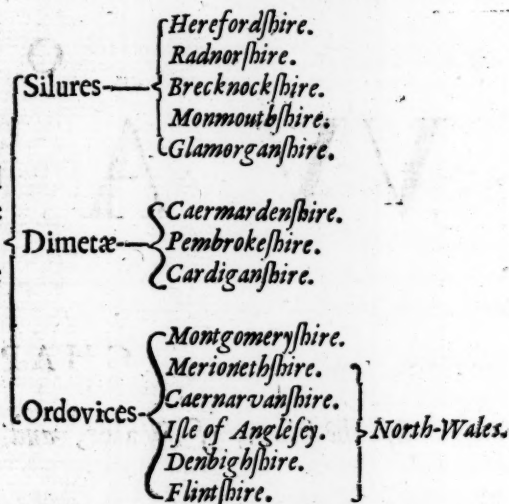 Silures
Herefordſhire.
Radnorſhire.
Brecknockſhire.
Monmouthſhire.
Glamorganſhire.
Dimetæ
Caermardenſhire.
Pembrokeſhire.
Cardiganſhire.
Ordovices
Montgomeryſhire.
Merionethſhire.
Caernarvanſhire.
Iſle of Angleſey.
Denbighſhire.
Flintſhire.
North-Wales.